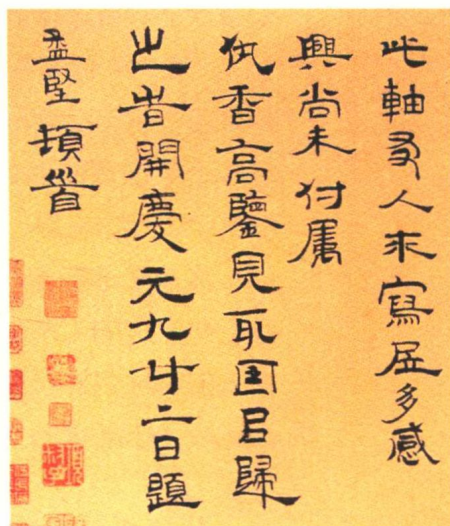 此軸友人求寫居多感
興尚未付屬
仇香高鑒見取因以歸
之旹開慶元九廿二日題
孟堅頓首